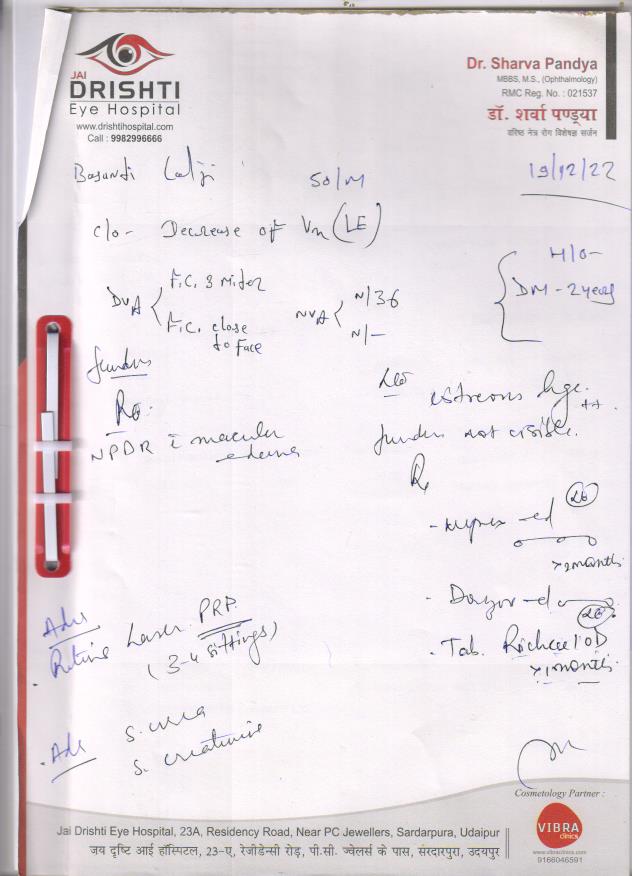 JAI
DRISHTI
Eye Hospital
www.drishtihospital.com
Call : 9982996666
Dr. Sharva Pandya
MBBS, M.S., (Ophthalmology)
RMC Reg. No. : 021537
डॉ. शर्वा पण्ड्या
वरिष्ठ नेत्र रोग विशेषज्ञ सर्जन
50/M
19/12/22
c/o- Decrease of Vn (LE)
H/O-
DM - 2 years
DVA
F.C. 3 meter
F.C. close
to face
NVA
N/36
N/-
fundus
RE:
NPDR c macular
edema
LE
vitreous hge. ++
fundus not visible.
Rx
- ed
LE
x 2 months
- ed
LE
- Tab. OD
x 1 months
Adv
Retina Laser PRP
(3-4 sittings)
- Adv
S. urea
S. creatinine
Cosmetology Partner :
VIBRA
clinics
www.vibraclinics.com
9166046591
Jai Drishti Eye Hospital, 23A, Residency Road, Near PC Jewellers, Sardarpura, Udaipur
जय दृष्टि आई हॉस्पिटल, 23-ए, रेजीडेन्सी रोड़, पी.सी. ज्वेलर्स के पास, सरदारपुरा, उदयपुर